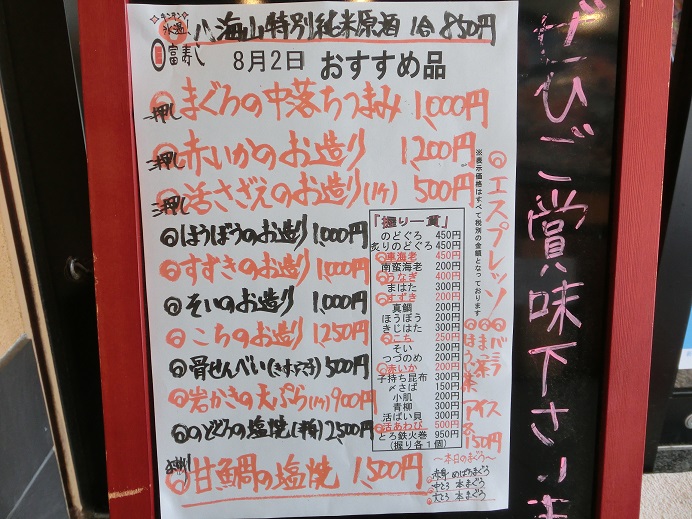 キンキン 氷温、八海山特別純米原酒 1合 850円
富寿し 8月2日 おすすめ品
一押し まぐろの中落ちつまみ 1,000円
二押し 赤いかのお造り 1,200円
三押し 活さざえのお造り(1ケ) 500円
◎ほうぼうのお造り 1,000円
◎すずきのお造り 1,000円
◎そいのお造り 1,000円
◎こちのお造り 1,250円
◎骨せんべい 500円
◎岩かきの天ぷら(1ケ) 900円
◎のどぐろの塩焼(半身) 2,500円
甘鯛の塩焼 1,500円
『握り一貫』
のどぐろ 450円
炙りのどぐろ 450円
◎車海老 450円
南蛮海老 200円
◎うなぎ 400円
まはた 300円
◎すずき 200円
真鯛 200円
ほうぼう 200円
きじはた 300円
◎こち 250円
そい 200円
つづのめ 200円
◎赤いか 200円
子持ち昆布 300円
〆さば 150円
小肌 200円
青柳 300円
活ばい貝 300円
◎活あわび 500円
とろ鉄火巻 950円
(握り各1個)
～本日のまぐろ～
赤身 めばちまぐろ
中とろ 本まぐろ
大とろ 本まぐろ
※表示価格はすべて税別の金額となっております
ぜひご賞味下さいま
◎エスプレッソ
◎バニラ
◎まっ茶
アイス
各150円